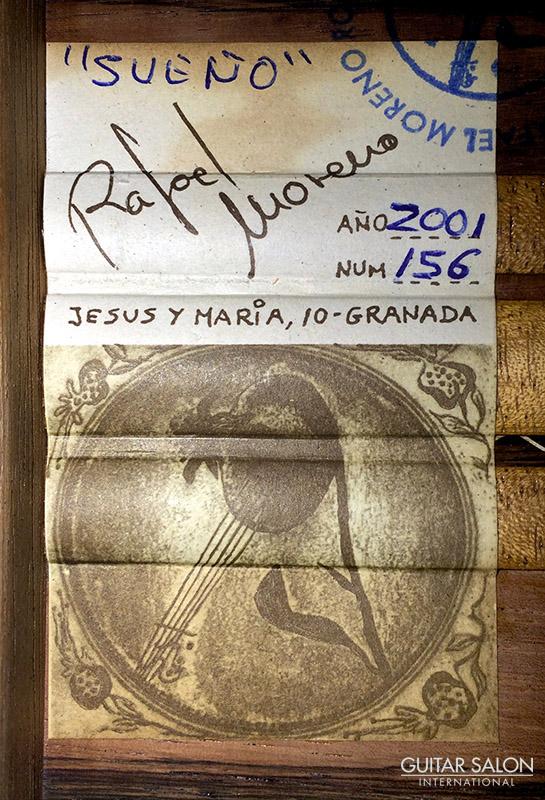 "SUEÑO"
Rafael
Moreno
AÑO 2001
NUM 156
JESUS Y MARÍA, 10-GRANADA
RAFAEL MORENO RO
GUITAR SALON
INTERNATIONAL